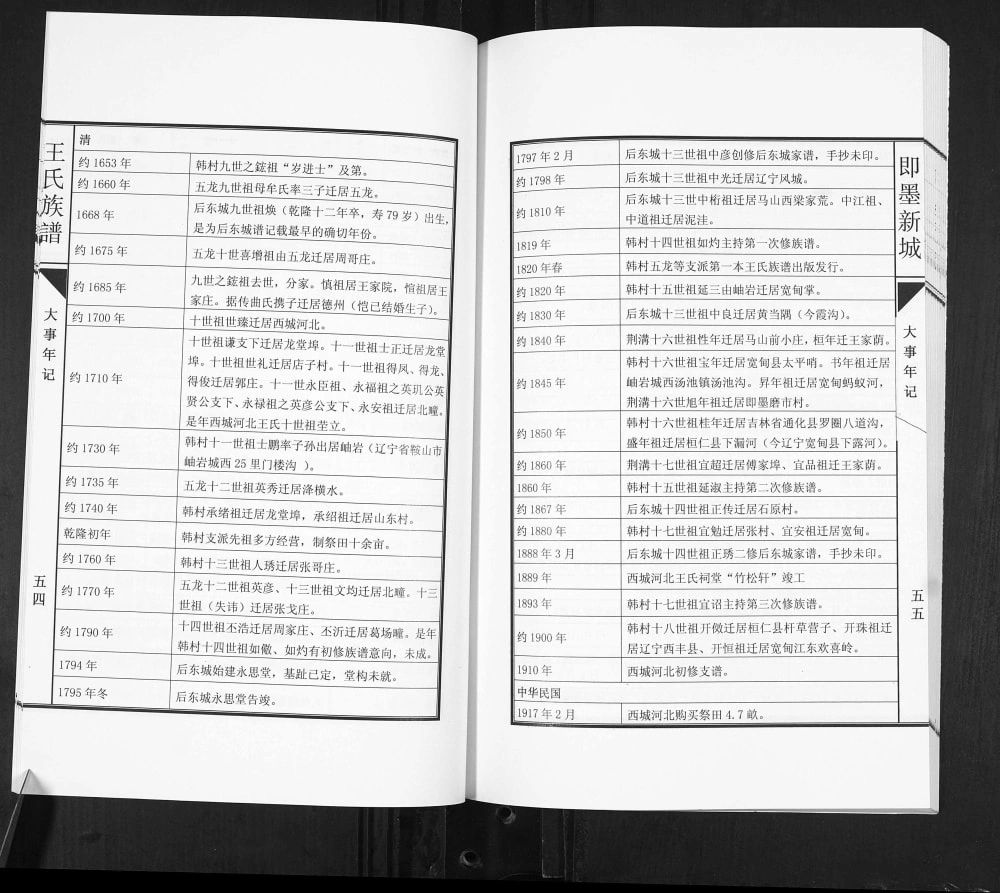 王氏族譜
大事年记
五四
清
约1653年 韩村九世之鋐祖“岁进士”及第。
约1660年 五龙九世祖母牟氏率三子迁居五龙。
1668年 后东城九世祖焕（乾隆十二年卒，寿79岁）出生，
是为后东城谱记载最早的确切年份。
约1675年 五龙十世喜增祖由五龙迁居周哥庄。
约1685年 九世之鋐祖去世，分家。慎祖居王家院，恒祖居王
家庄。据传曲氏携子迁居德州（恺已结婚生子）。
约1700年 十世祖世臻迁居西城河北。
约1710年 十世祖谦支下迁居龙堂埠。十一世祖士正迁居龙堂
埠。十世祖世礼迁居店子村。十一世祖得凤、得龙、
得俊迁居郭庄。十一世永臣祖、永福祖之英玑公英
贤公支下、永禄祖之英彦公支下、永安祖迁居北疃。
是年西城河北王氏十世祖茔立。
约1730年 韩村十一世祖士鹏率子孙出居岫岩（辽宁省鞍山市
岫岩城西25里门楼沟 ）。
约1735年 五龙十二世祖英秀迁居洚横水。
约1740年 韩村承绪祖迁居龙堂埠，承绍祖迁居山东村。
乾隆初年 韩村支派先祖多方经营，制祭田十余亩。
约1760年 韩村十三世祖人琇迁居张哥庄。
约1770年 五龙十二世祖英彦、十三世祖文均迁居北疃。十三
世祖（失讳）迁居张戈庄。
约1790年 十四世祖丕浩迁居周家庄、丕沂迁居葛场疃。是年
韩村十四世祖如儆、如灼有初修族谱意向，未成。
1794年 后东城始建永思堂，基趾已定，堂构未就。
1795年冬 后东城永思堂告竣。
即墨新城
大事年记
五五
1797年2月 后东城十三世祖中彦创修后东城家谱，手抄未印。
约1798年 后东城十三世祖中光迁居辽宁风城。
约1810年 后东城十三世祖中桁祖迁居马山西梁家荒。中江祖、
中道祖迁居泥洼。
1819年 韩村十四世祖如灼主持第一次修族谱。
1820年春 韩村五龙等支派第一本王氏族谱出版发行。
约1820年 韩村十五世祖延三由岫岩迁居宽甸掌。
约1830年 后东城十三世祖中良迁居黄当隅（今霞沟）。
约1840年 荆溝十六世祖性年迁居马山前小庄，桓年迁王家荫。
约1845年 韩村十六世祖宝年迁居宽甸县太平哨。书年祖迁居
岫岩城西汤池镇汤池沟。昇年祖迁居宽甸蚂蚁河，
荆溝十六世旭年祖迁居即墨磨市村。
约1850年 韩村十六世祖桂年迁居吉林省通化县罗圈八道沟，
盛年祖迁居桓仁县下漏河（今辽宁宽甸县下露河）。
约1860年 荆溝十七世祖宜超迁居傅家埠、宜品祖迁王家荫。
1860年 韩村十五世祖延淑主持第二次修族谱。
约1867年 后东城十四世祖正传迁居石原村。
约1880年 韩村十七世祖宜勉迁居张村、宜安祖迁居宽甸。
1888年3月 后东城十四世祖正琇二修后东城家谱，手抄未印。
1889年 西城河北王氏祠堂“竹松轩”竣工
1893年 韩村十七世祖宜诏主持第三次修族谱。
约1900年 韩村十八世祖开儆迁居桓仁县杆草营子、开珠祖迁
居辽宁西丰县、开恒祖迁居宽甸江东欢喜岭。
1910年 西城河北初修支谱。
中华民国
1917年2月 西城河北购买祭田4.7畝。